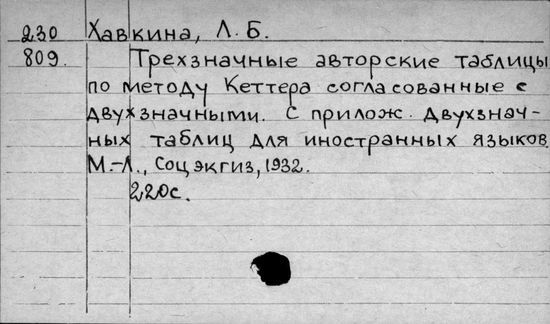 230 Хавкина, Л. Б.
809. Трехзначные авторские таблицы
по методу Кеттера согласованные с
двухзначными. С прилож. двухзнач-
ных таблиц для иностранных языков.
М.-Л., Соцэкгиз, 1932.
220с.